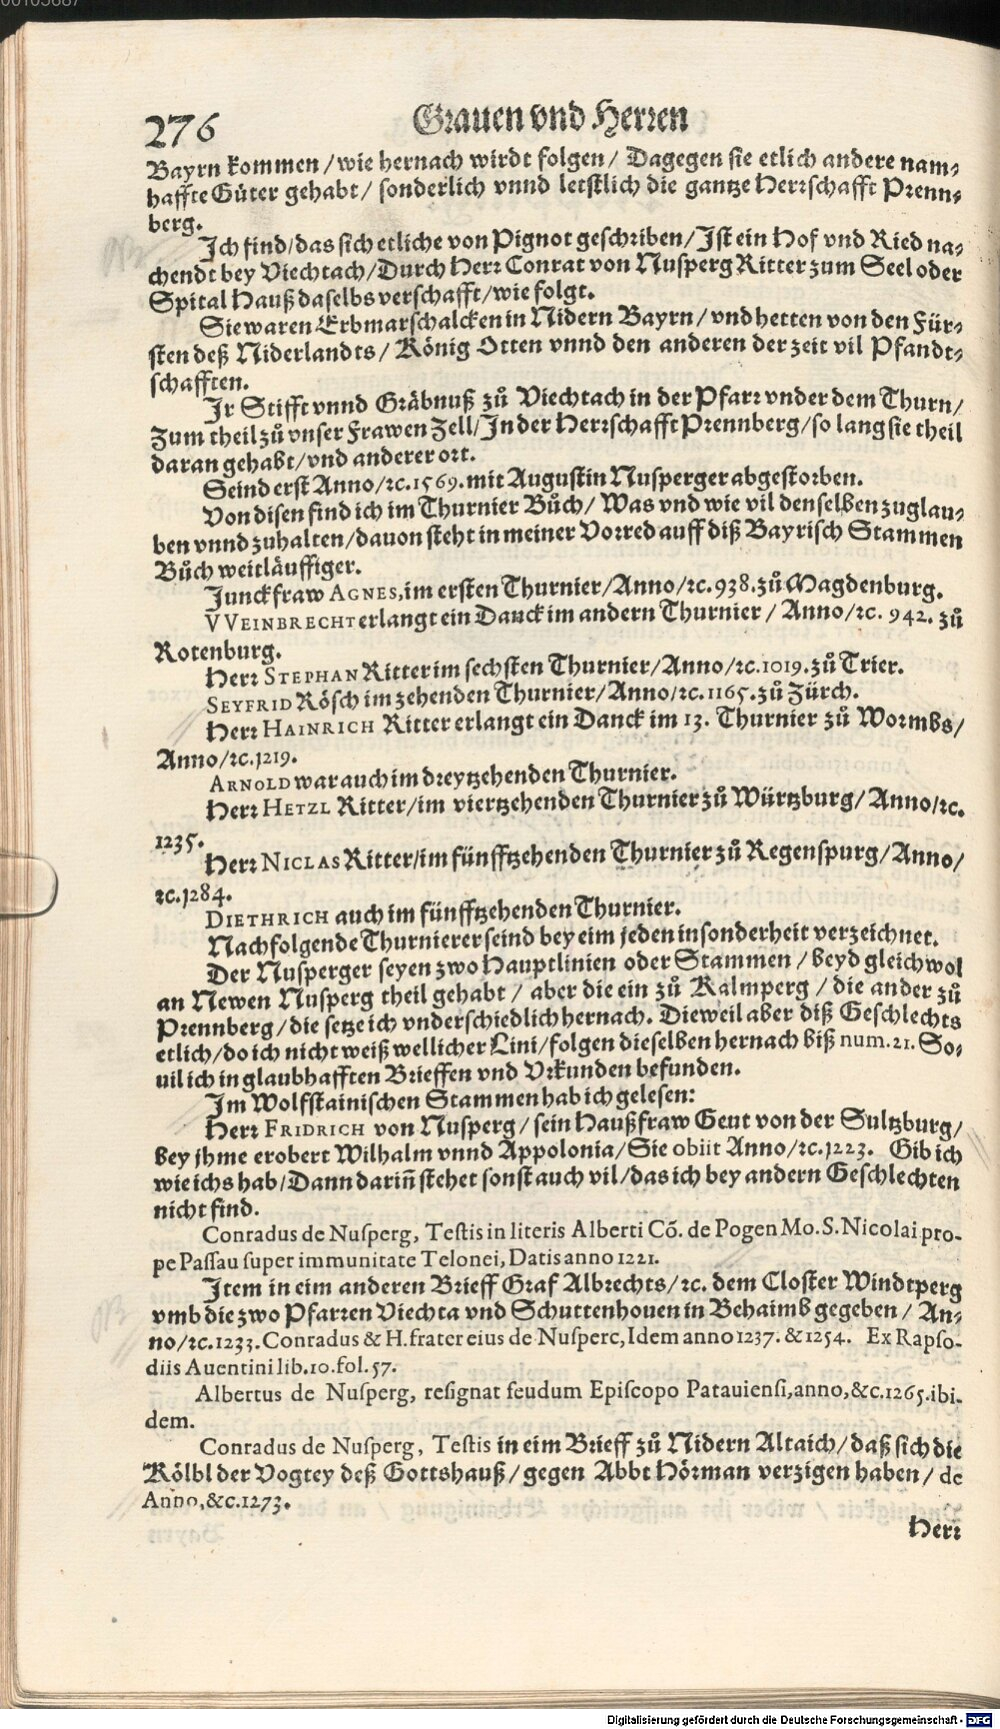 276
Grauen vnd Herren
Bayrn kommen / wie hernach wirdt folgen / Dagegen sie etlich andere nam-
haffte Güter gehabt / sonderlich vnnd letstlich die gantze Herrschafft Prenn-
berg.
Ich find / das sich etliche von Pignot geschriben / Ist ein Hof vnd Ried na-
chendt bey Viechtach / Durch Herr Conrat von Nusperg Ritter zum Seel oder
Spital Hauß daselbs verschafft / wie folgt.
Sie waren Erbmarschalcken in Nidern Bayrn / vnd hetten von den Für-
sten deß Niderlandts / König Otten vnnd den anderen der zeit vil Pfandt-
schafften.
Ir Stifft vnnd Gräbnuß zů Viechtach in der Pfarr vnder dem Thurn /
Zum theil zů vnser Frawen Zell / In der Herrschafft Prennberg / so lang sie theil
daran gehabt / vnd anderer ort.
Seind erst Anno / ꝛc. 1569. mit Augustin Nusperger abgestorben.
Von disen find ich im Thurnier Bůch / Was vnd wie vil denselben zuglau-
ben vnnd zuhalten / dauon steht in meiner Vorred auff diß Bayrisch Stammen
Bůch weitläuffiger.
Junckfraw AGNES, im ersten Thurnier / Anno / ꝛc. 938. zů Magdenburg.
VVEINBRECHT erlangt ein Danck im andern Thurnier / Anno / ꝛc. 942. zů
Rotenburg.
Herr STEPHAN Ritter im sechsten Thurnier / Anno / ꝛc. 1019. zů Trier.
SEYFRID Rösch im zehenden Thurnier / Anno / ꝛc. 1165. zů Zürch.
Herr HAINRICH Ritter erlangt ein Danck im 13. Thurnier zů Wormbs /
Anno / ꝛc. 1219.
ARNOLD war auch im dreytzehenden Thurnier.
Herr HETZL Ritter / im viertzehenden Thurnier zů Würtzburg / Anno / ꝛc.
1235.
Herr NICLAS Ritter / im fünfftzehenden Thurnier zů Regenspurg / Anno /
ꝛc. 1284.
DIETHRICH auch im fünfftzehenden Thurnier.
Nachfolgende Thurnierer seind bey eim jeden insonderheit verzeichnet.
Der Nusperger seyen zwo Hauptlinien oder Stammen / beyd gleichwol
an Newen Nusperg theil gehabt / aber die ein zů Kalmperg / die ander zů
Prennberg / die setze ich vnderschiedlich hernach. Dieweil aber diß Geschlechts
etlich / do ich nicht weiß wellicher Lini / folgen dieselben hernach biß num. 21. So-
uil ich in glaubhafften Brieffen vnd Vrkunden befunden.
Im Wolfstainischen Stammen hab ich gelesen:
Herr FRIDRICH von Nusperg / sein Haußfraw Geut von der Sultzburg /
bey jhme erobert Wilhalm vnnd Appolonia / Sie obiit Anno / ꝛc. 1223. Gib ich
wie ichs hab / Dann dariñ stehet sonst auch vil / das ich bey andern Geschlechten
nicht find.
Conradus de Nusperg, Testis in literis Alberti Cõ. de Pogen Mo. S. Nicolai pro-
pe Passau super immunitate Telonei, Datis anno 1221.
Item in eim anderen Brieff Graf Albrechts / ꝛc. dem Closter Windtperg
vmb die zwo Pfarren Viechta vnd Schuttenhouen in Behaimb gegeben / An-
no / ꝛc. 1233. Conradus & H. frater eius de Nusperc, Idem anno 1237. & 1254. Ex Rapso-
diis Auentini lib. 10. fol. 57.
Albertus de Nusperg, resignat feudum Episcopo Patauiensi, anno, &c. 1265. ibi-
dem.
Conradus de Nusperg, Testis in eim Brieff zů Nidern Altaich / daß sich die
Kölbl der Vogtey deß Gottshauß / gegen Abbt Hörman verzigen haben / de
Anno, &c. 1273.
Herr
Digitalisierung gefördert durch die Deutsche Forschungsgemeinschaft - DFG